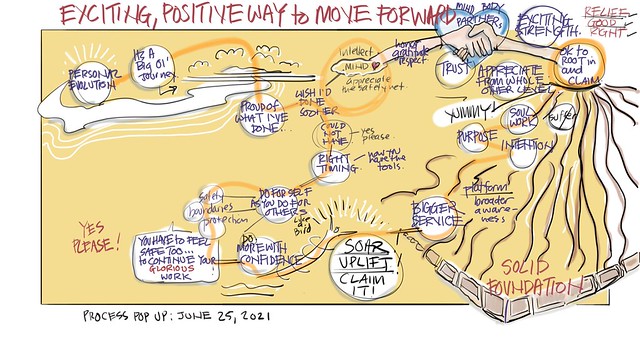 EXCITING, POSITIVE WAY to MOVE FORWARD
MIND BODY
PARTNERS
EXCITING
STRENGTH.
RELIEF
GOOD
RIGHT
PERSONAL
EVOLUTION
IT'S A
BIG OL'
JOURNEY
PROUD OF
WHAT I'VE
DONE...
WISH I'D
DONE
SOONER
intellect
MIND
appreciate
the safety net.
honor
gratitude
respect
TRUST
APPRECIATE
FROM WHOLE
OTHER LEVEL
OK to
ROOT in
and
CLAIM
COULD
NOT
HAVE
yes
please.
RIGHT
TIMING
now you
have the
tools.
YUMMY!
SOUL
WORK
SUFFER
PURPOSE
INTENTION
platform
broader
aware-
ness
BIGGER
SERVICE
Safety
boundaries
protection
DO FOR SELF
AS YOU DO FOR
OTHERS
YES
PLEASE!
YOU HAVE TO FEEL
SAFE TOO...
to CONTINUE YOUR
GLORIOUS
WORK
DO
MORE WITH
CONFIDENCE
like
a
bird
SOAR
UPLIFT
CLAIM
IT!
SOLID
FOUNDATION
PROCESS POP UP: JUNE 25, 2021